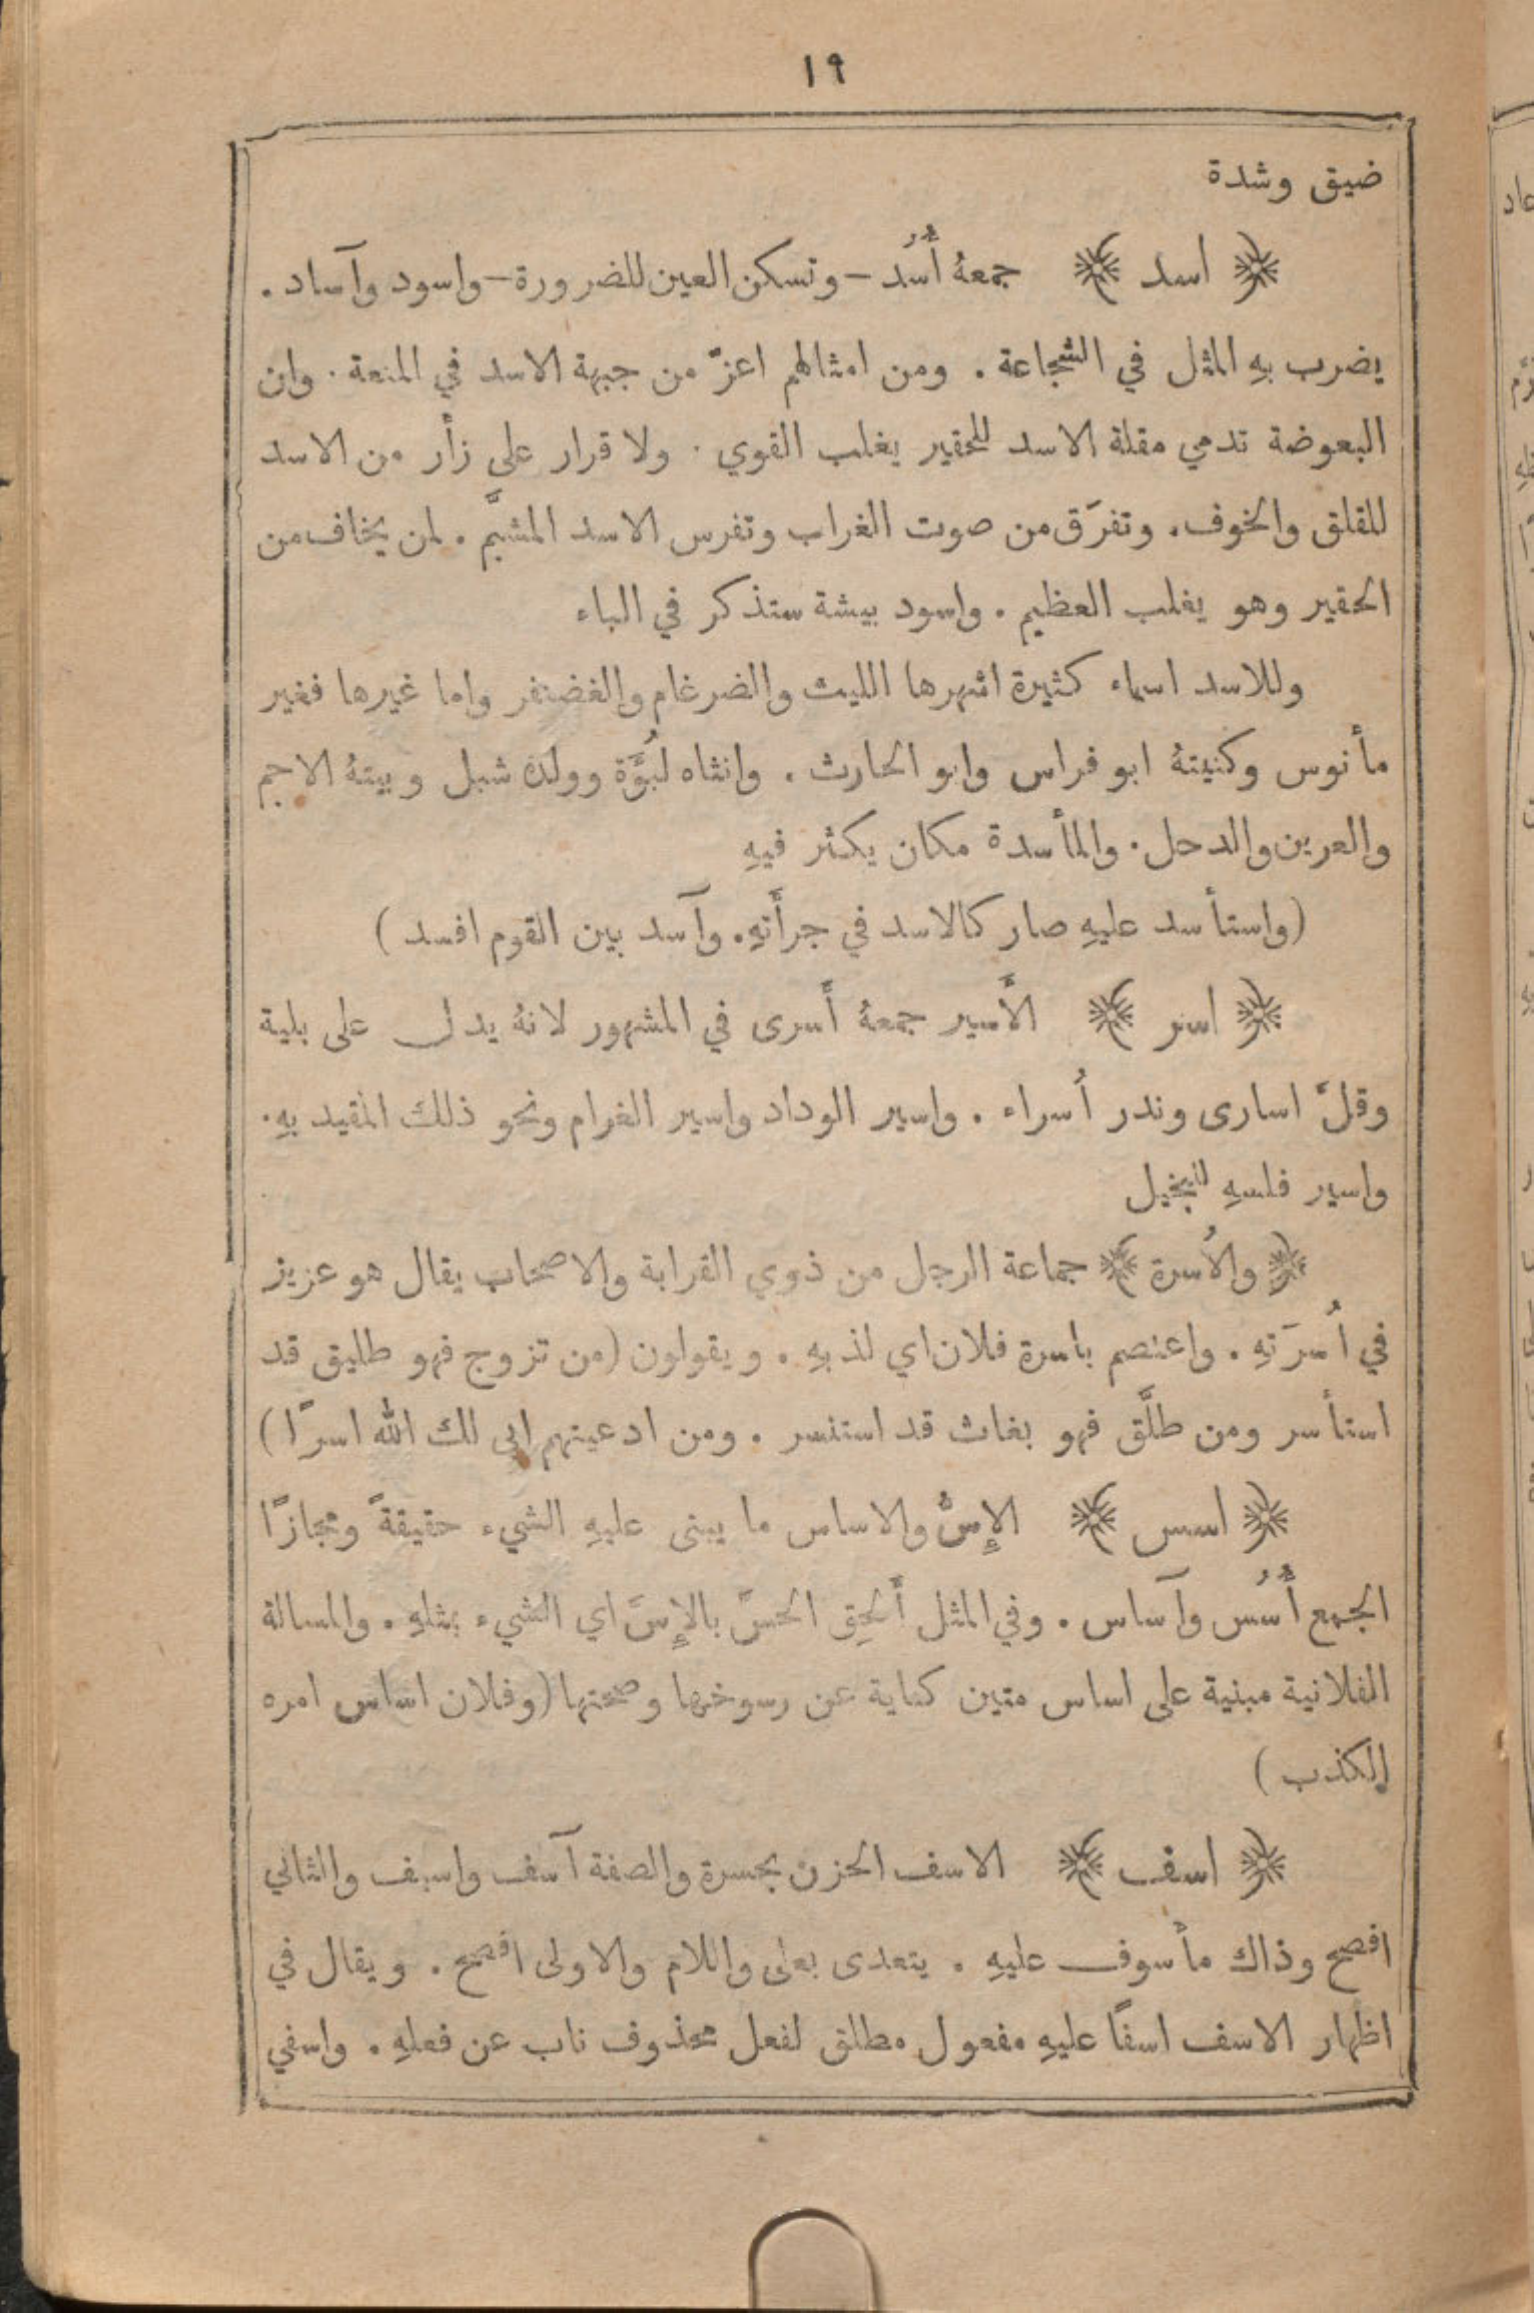 ١٩
ضيق وشدة
﴿ اسد ﴾ جمعهُ أُسُد – وتسكن العين للضرورة – واسود وآساد .
يضرب بهِ المثل في الشجاعة . ومن امثالهم اعزّ من جبهة الاسد في المنعة . وان
البعوضة تدمي مقلة الاسد للحقير يغلب القوي . ولا قرار على زأر من الاسد
للقلق والخوف . وتفرَق من صوت الغراب وتفرس الاسد المشبَّم . لمن يخاف من
الحقير وهو يغلب العظيم . واسود بيشة ستذكر في الباء
وللاسد اسماء كثيرة اشهرها الليث والضرغام والغضنفر واما غيرها فغير
مأنوس وكنيتهُ ابو فراس وابو الحارث . وانثاه لبُؤَة وولدهُ شبل وبيتهُ الاجم
والعرين والدحل . والمأسدة مكان يكثر فيهِ
(واستأسد عليهِ صار كالاسد في جرأَتهِ . وآسد بين القوم افسد)
﴿ اسر ﴾ الأَسير جمعهُ أَسرى في المشهور لانهُ يدل على بلية
وقلَّ اسارى وندر أُسراء . واسير الوداد واسير الغرام ونحو ذلك المقيد بهِ .
واسير فلسهِ للبخيل
﴿ والأُسرة ﴾ جماعة الرجل من ذوي القرابة والاصحاب يقال هو عزيز
في أُسرَتهِ . واعتصم باسرة فلان اي لذ بهِ . ويقولون (من تزوج فهو طليق قد
استأسر ومن طلَّق فهو بغاث قد استنسر . ومن ادعيتهم ابى لك الله اسرًا)
﴿ اسس ﴾ الإِسُّ والاساس ما يبنى عليهِ الشيء حقيقةً ومجازًا
الجمع أُسُس وآساس . وفي المثل أَلحِق الحسَّ بالإِسّ اي الشيء بمثلهِ . والمسالة
الفلانية مبنية على اساس متين كناية عن رسوخها وصحتها (وفلان اساس امره
الكذب)
﴿ اسف ﴾ الاسف الحزن بحسرة والصفة آسف واسيف والثاني
افصح وذاك مأسوف عليهِ . يتعدى بعلى واللام والاولى افصح . ويقال في
اظهار الاسف اسفًا عليهِ مفعول مطلق لفعل محذوف ناب عن فعلهِ . واسفي